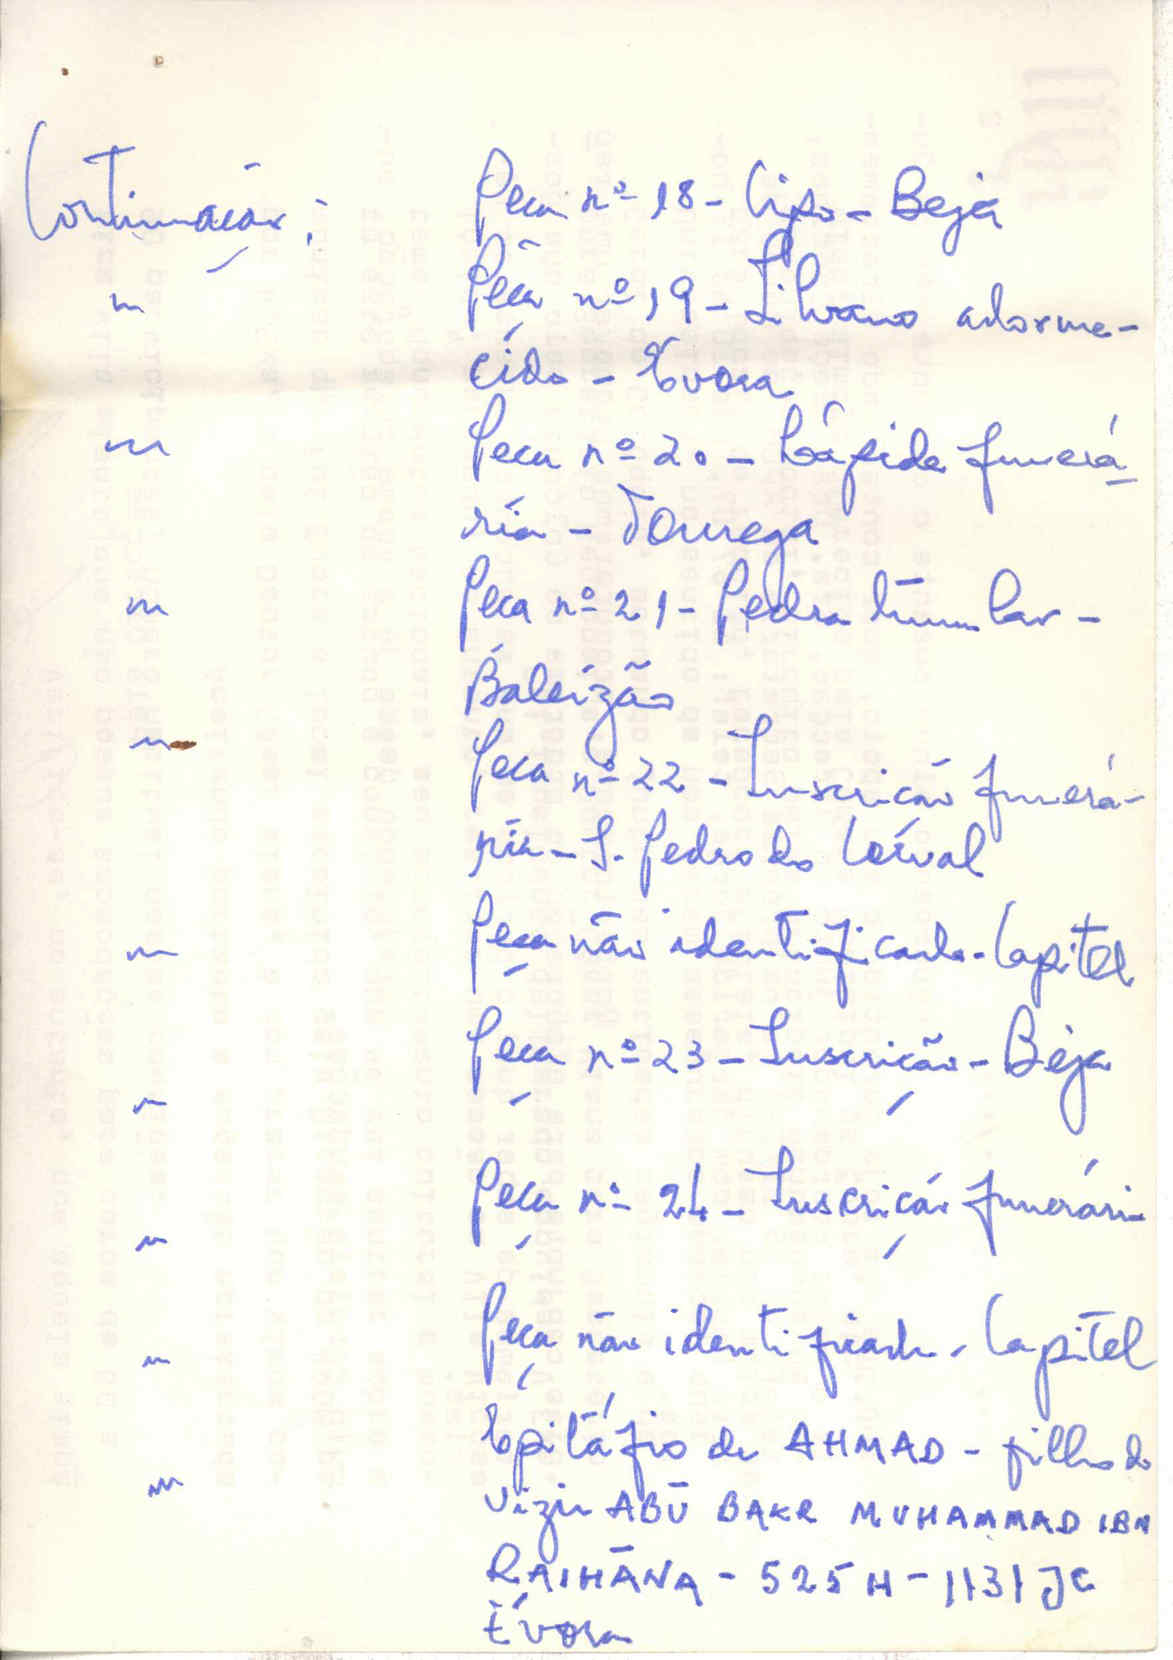 Continuação:
Peça nº 18 - Cipo - Beja
" Peça nº 19 - Silvano adorme-
cido - Évora
" Peça nº 20 - Lápide funerá-
ria - Tourega
" Peça nº 21 - Pedra tumular -
Baleizão
" Peça nº 22 - Inscrição funerá-
ria - S. Pedro do Corval
" Peça não identificada - Capitel
" Peça nº 23 - Inscrição - Beja
" Peça nº 24 - Inscrição funerária
" Peça não identificada - Capitel
" Epitáfio de AHMAD - filho do
vizir ABŪ BAKR MUHAMMAD IBN
RAIHĀNA - 525 H - 1131 JC
Évora